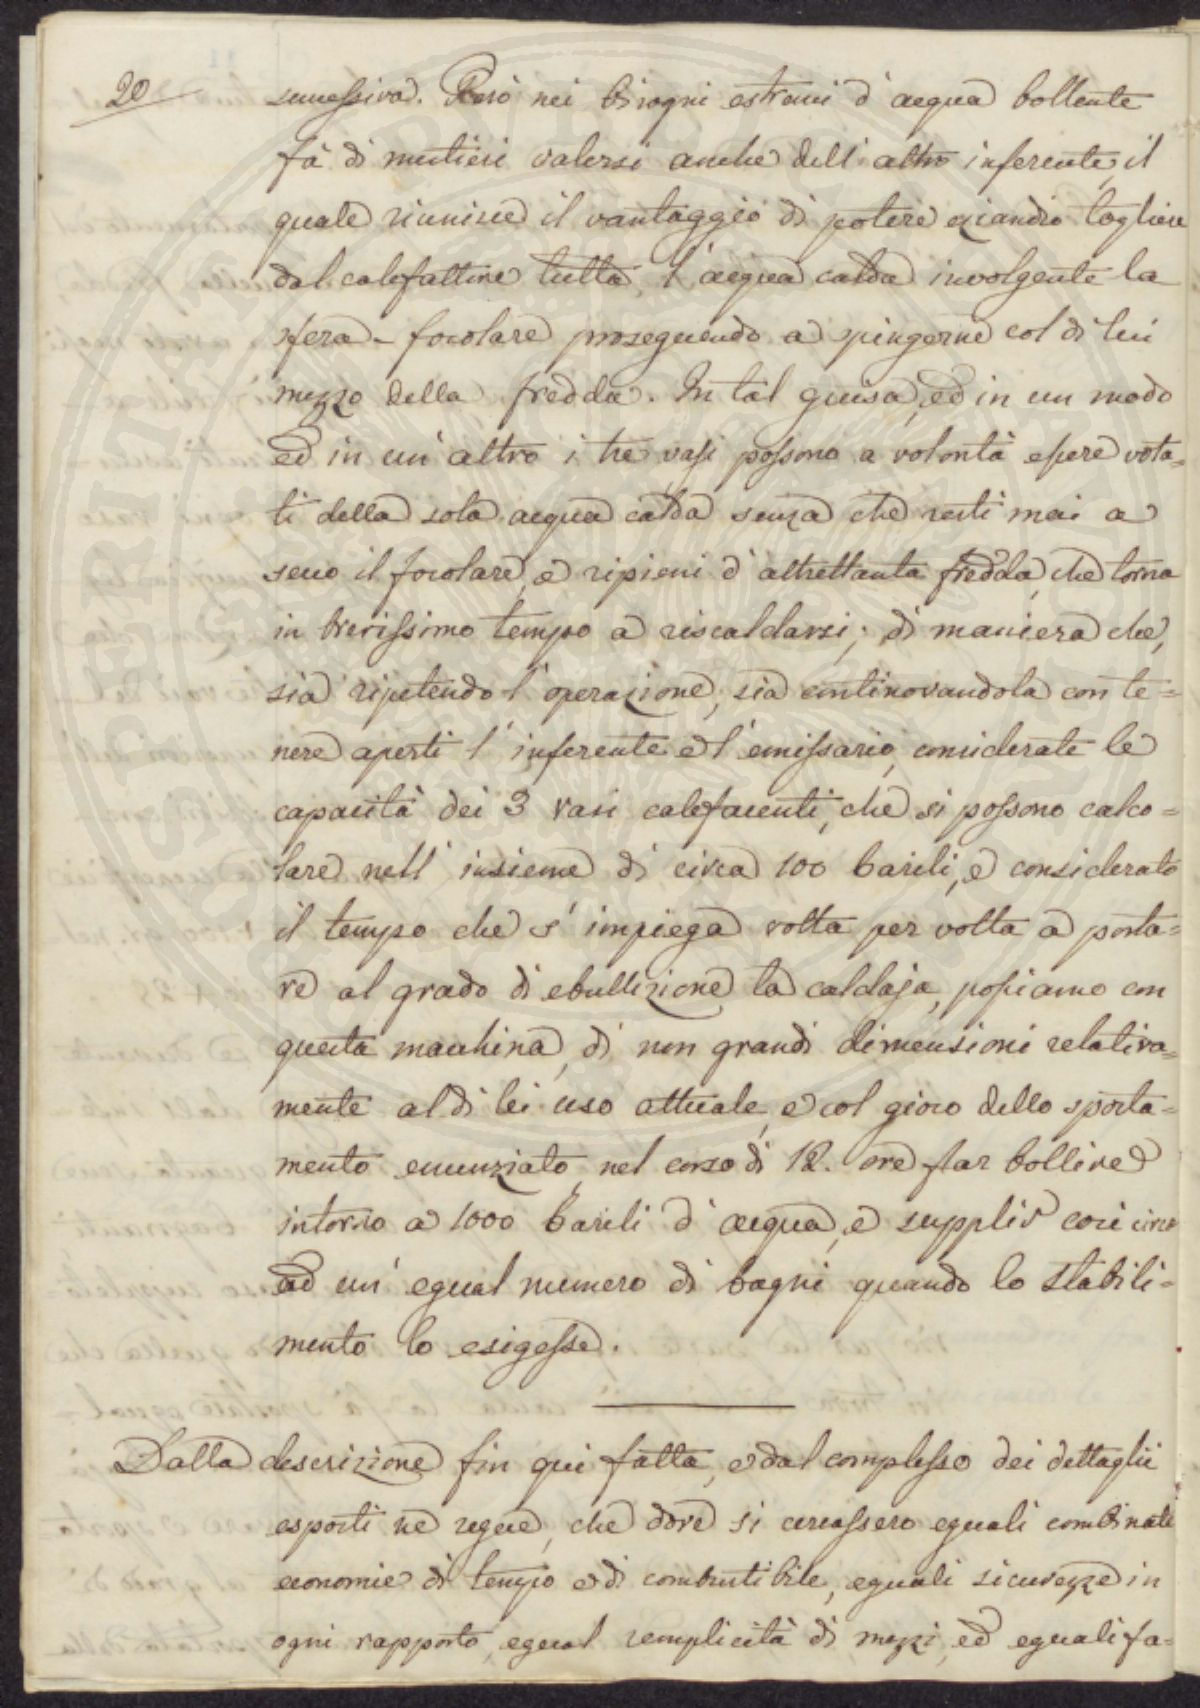 20
successiva. Però nei bisogni estremi d'acqua bollente
fà di mestieri valersi anche dell'altro inferente, il
quale riunisce il vantaggio di potere eziandio togliere
dal calefattore tutta l'acqua calda involgente la
sfera-focolare proseguendo a spingerne col di lui
mezzo della fredda. In tal guisa, ed in un modo
ed in un'altro i tre vasi possono a volontà essere vota=
ti della sola acqua calda senza che resti mai a
secco il focolare, e ripieni d'altrettanta fredda, che torna
in brevissimo tempo a riscaldarsi; di maniera che,
sia ripetendo l'operazione, sia continovandola con te=
nere aperti l'inferente e l'emissario, considerate le
capacità dei 3 vasi calefacenti, che si possono calco=
lare nell'insieme di circa 100 barili, e considerato
il tempo che s'impiega volta per volta a porta=
re al grado di ebullizione la caldaja, possiamo con
questa macchina, di non grandi dimensioni relativa=
mente al di lei uso attuale, e col gioco dello sposta=
mento enunziato, nel corso di 12. ore far bollire
intorno a 1000 barili d'acqua, e supplir così circa
ad un'egual numero di bagni quando lo stabili=
mento lo esigesse.
Dalla descrizione fin qui fatta, e dal complesso dei dettaglii
esposti ne segue, che dove si cercassero eguali combinate
economie di tempo e di combustibile, eguali sicurezze in
ogni rapporto, egual semplicità di mezzi, ed eguali fa=